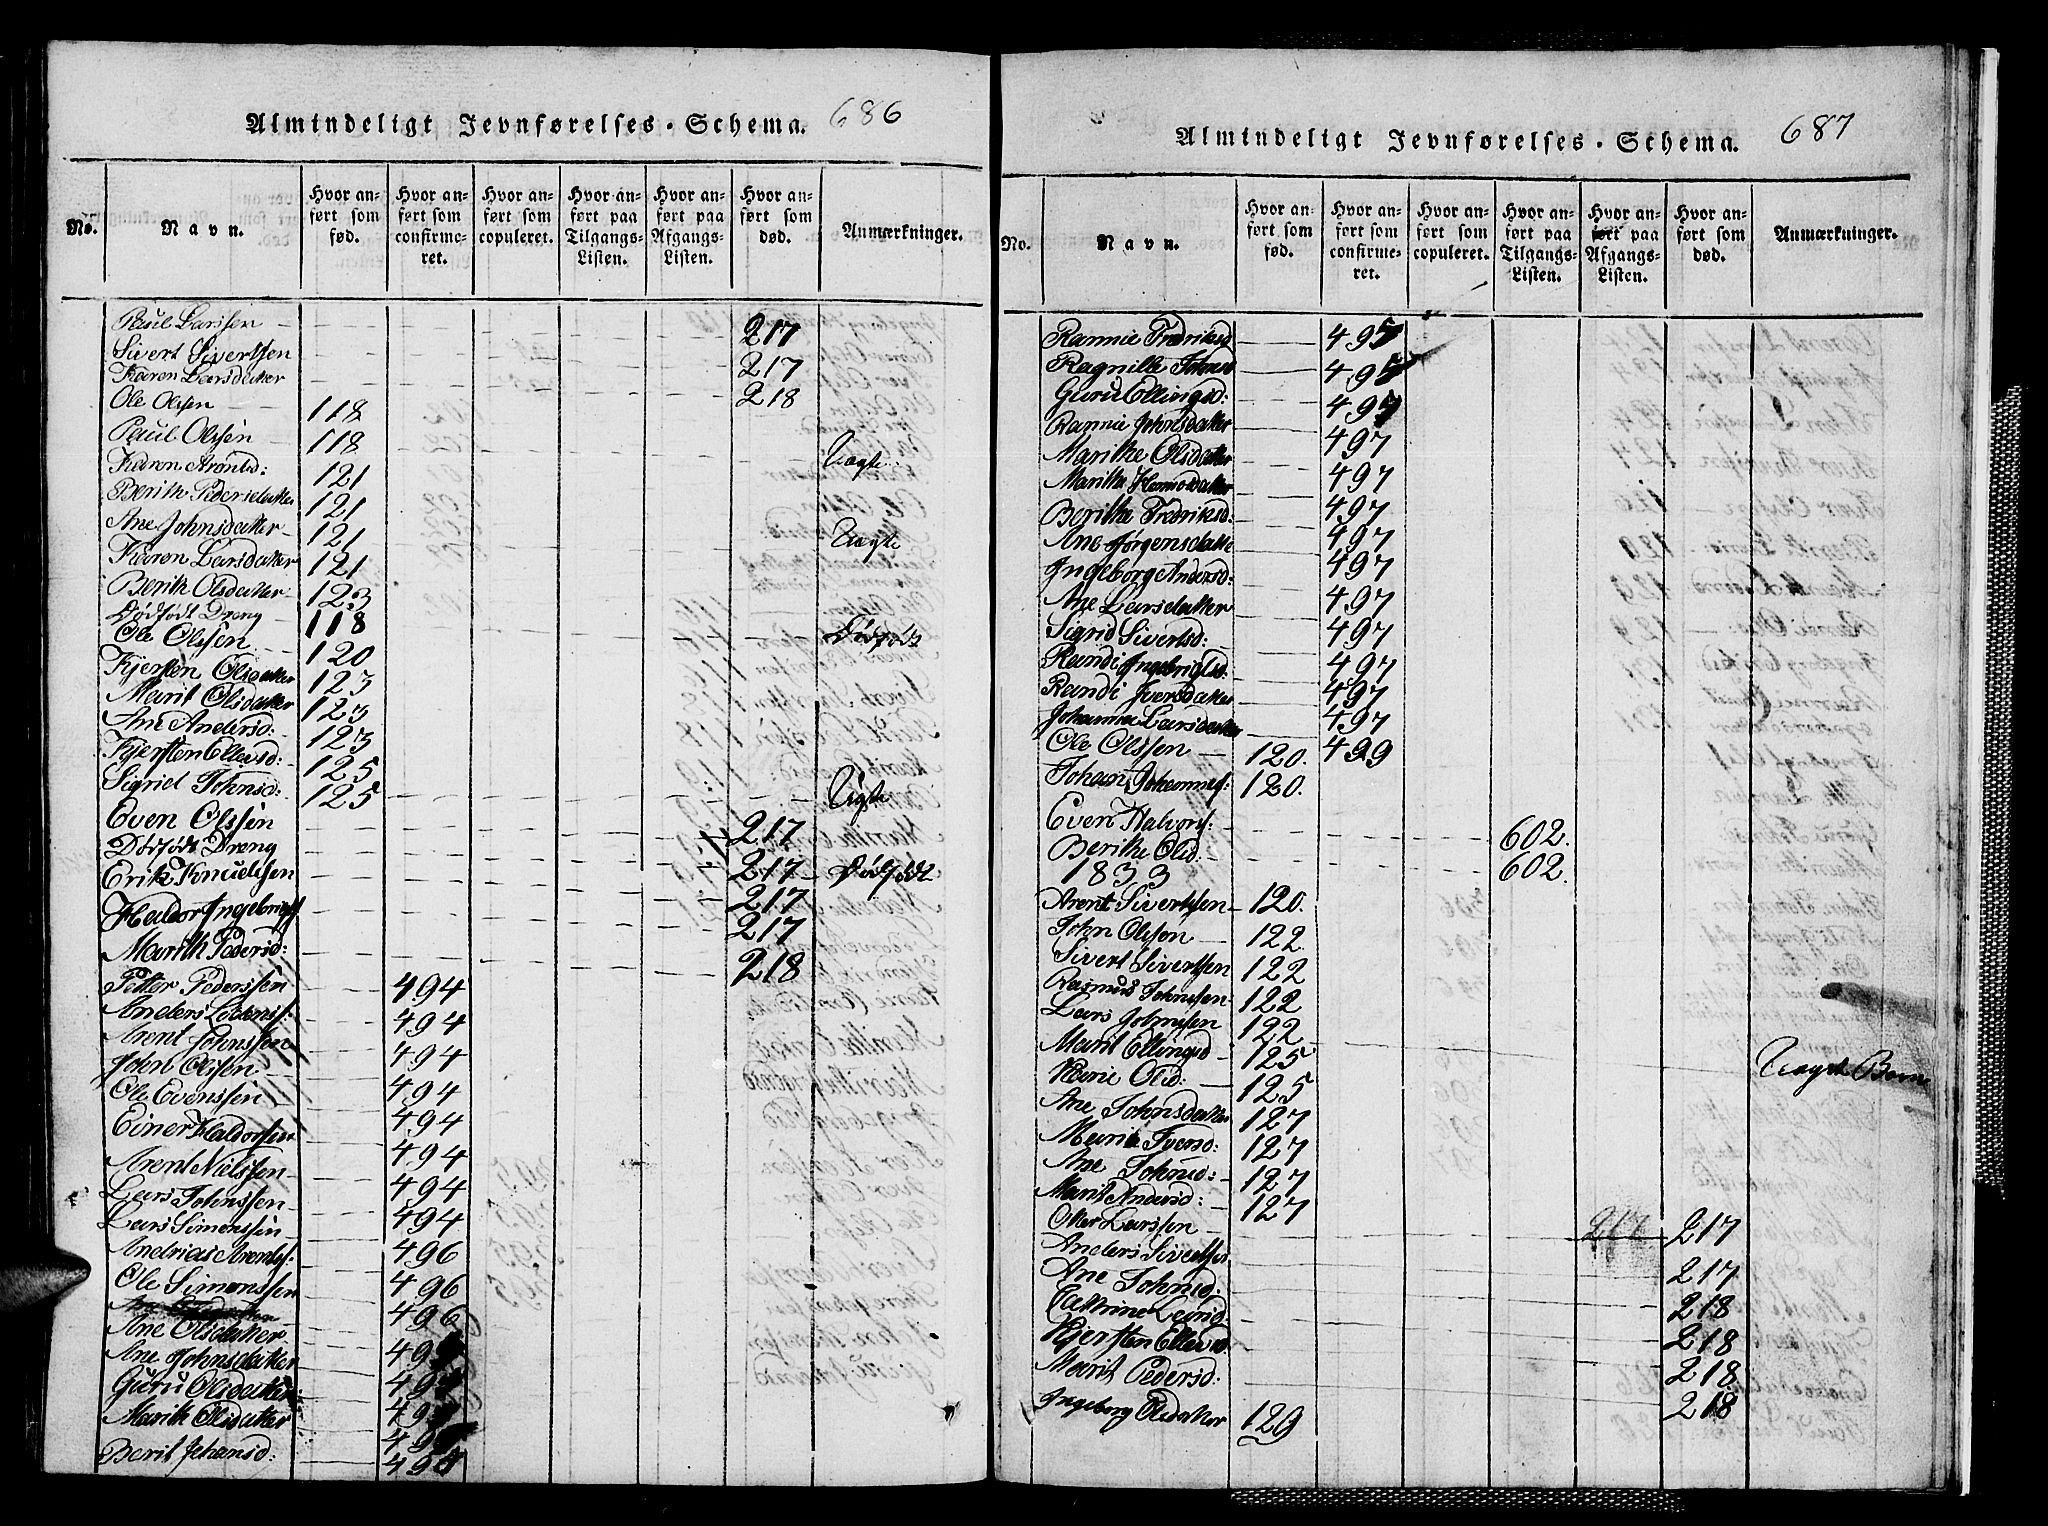 Almindeligt Jevnførelses-Schema. 686
No. Navn. Hvor anført som fød. Hvor anført som confirmeret. Hvor anført som copuleret. Hvor anført paa Tilgangs-Listen. Hvor anført paa Afgangs-Listen. Hvor anført som død. Anmærkninger.
Paul Larssen 217
Sivert Sivertssen 217
Karen Larsdatter 218
Ole Olssen 118
Paul Olssen 118
Karen Arontsd: 121
Berith Pedersdatter 121
Ane Johnsdatter 121
Karen Larsdatter 121
Berith Olsdatter 123
Dødfødt Dreng 118 Dødfødt
Ole Olssen 120
Kjersten Olsdatter 123
Marit Olsdatter 123
Ane Andersd: 123
Kjersten Ellevsd: 125
Sigrid Johnsd: 125
Even Olssen 217
Dødfødt Dreng 217 Dødfødt
Erik Knuelssen 217
Haldor Ingebrigts 217
Marith Pedersd: 218
Petter Pederssen 494
Anders 494
Arent Johnssen 494
John Olssen 494
Ole Evenssen 494
Einer Haldorssen 494
Arent Nielssen 494
Lars Johnssen 494
Lars Simonssen 496
Andreas Arentss: 496
Ole Simonssen 496
Ane Olsdatter
Ane Johnsdatter
Guru Olsdatter
Marith Olsdatter
Berit Johansd: 495
Almindeligt Jevnførelses-Schema. 687
No. Navn. Hvor anført som fød. Hvor anført som confirmeret. Hvor anført som copuleret. Hvor anført paa Tilgangs-Listen. Hvor anført paa Afgangs-Listen. Hvor anført som død. Anmærkninger.
Rannie Fredriksd 495
Ragnille Johnsd 495
Guru Ellingsd: 497
Rannie Johnsdatter 497
Marithe Olsdatter 497
Marithe 497
Berithe Fredriksd: 497
Ane Jørgensdatte 497
Ingeborg Andersd: 497
Ane Larsdatter 497
Sigrid Sivertsd: 497
Randi Ingebrigtsd: 497
Randi Iversdatter 497
Johanna Larsdatter 497
Ole Olssen 120. 499
Johan Johannes: 120.
Even Halvors: 602.
Berithe Olsd: 602.
1833
Arent Sivertssen 120.
John Olssen 122
Sivert Sivertssen 122
Rasmus Johnssen 122
Lars Johnssen 122
Marit Ellingsd 125
Marie Olsd: 125
Ane Johnsdatter 127
Marit Iversd: 127
Ane Johnsd: 127
Marit Andersd: 127
Otter Larssen 217 217
Anders Sivertssen 217
Ane Johnsd: 218
Cathrine Larsd: 218
Kjersten Ellevsd 218
Marit Pedersd: 218
Ingeborg Olsdatter 129